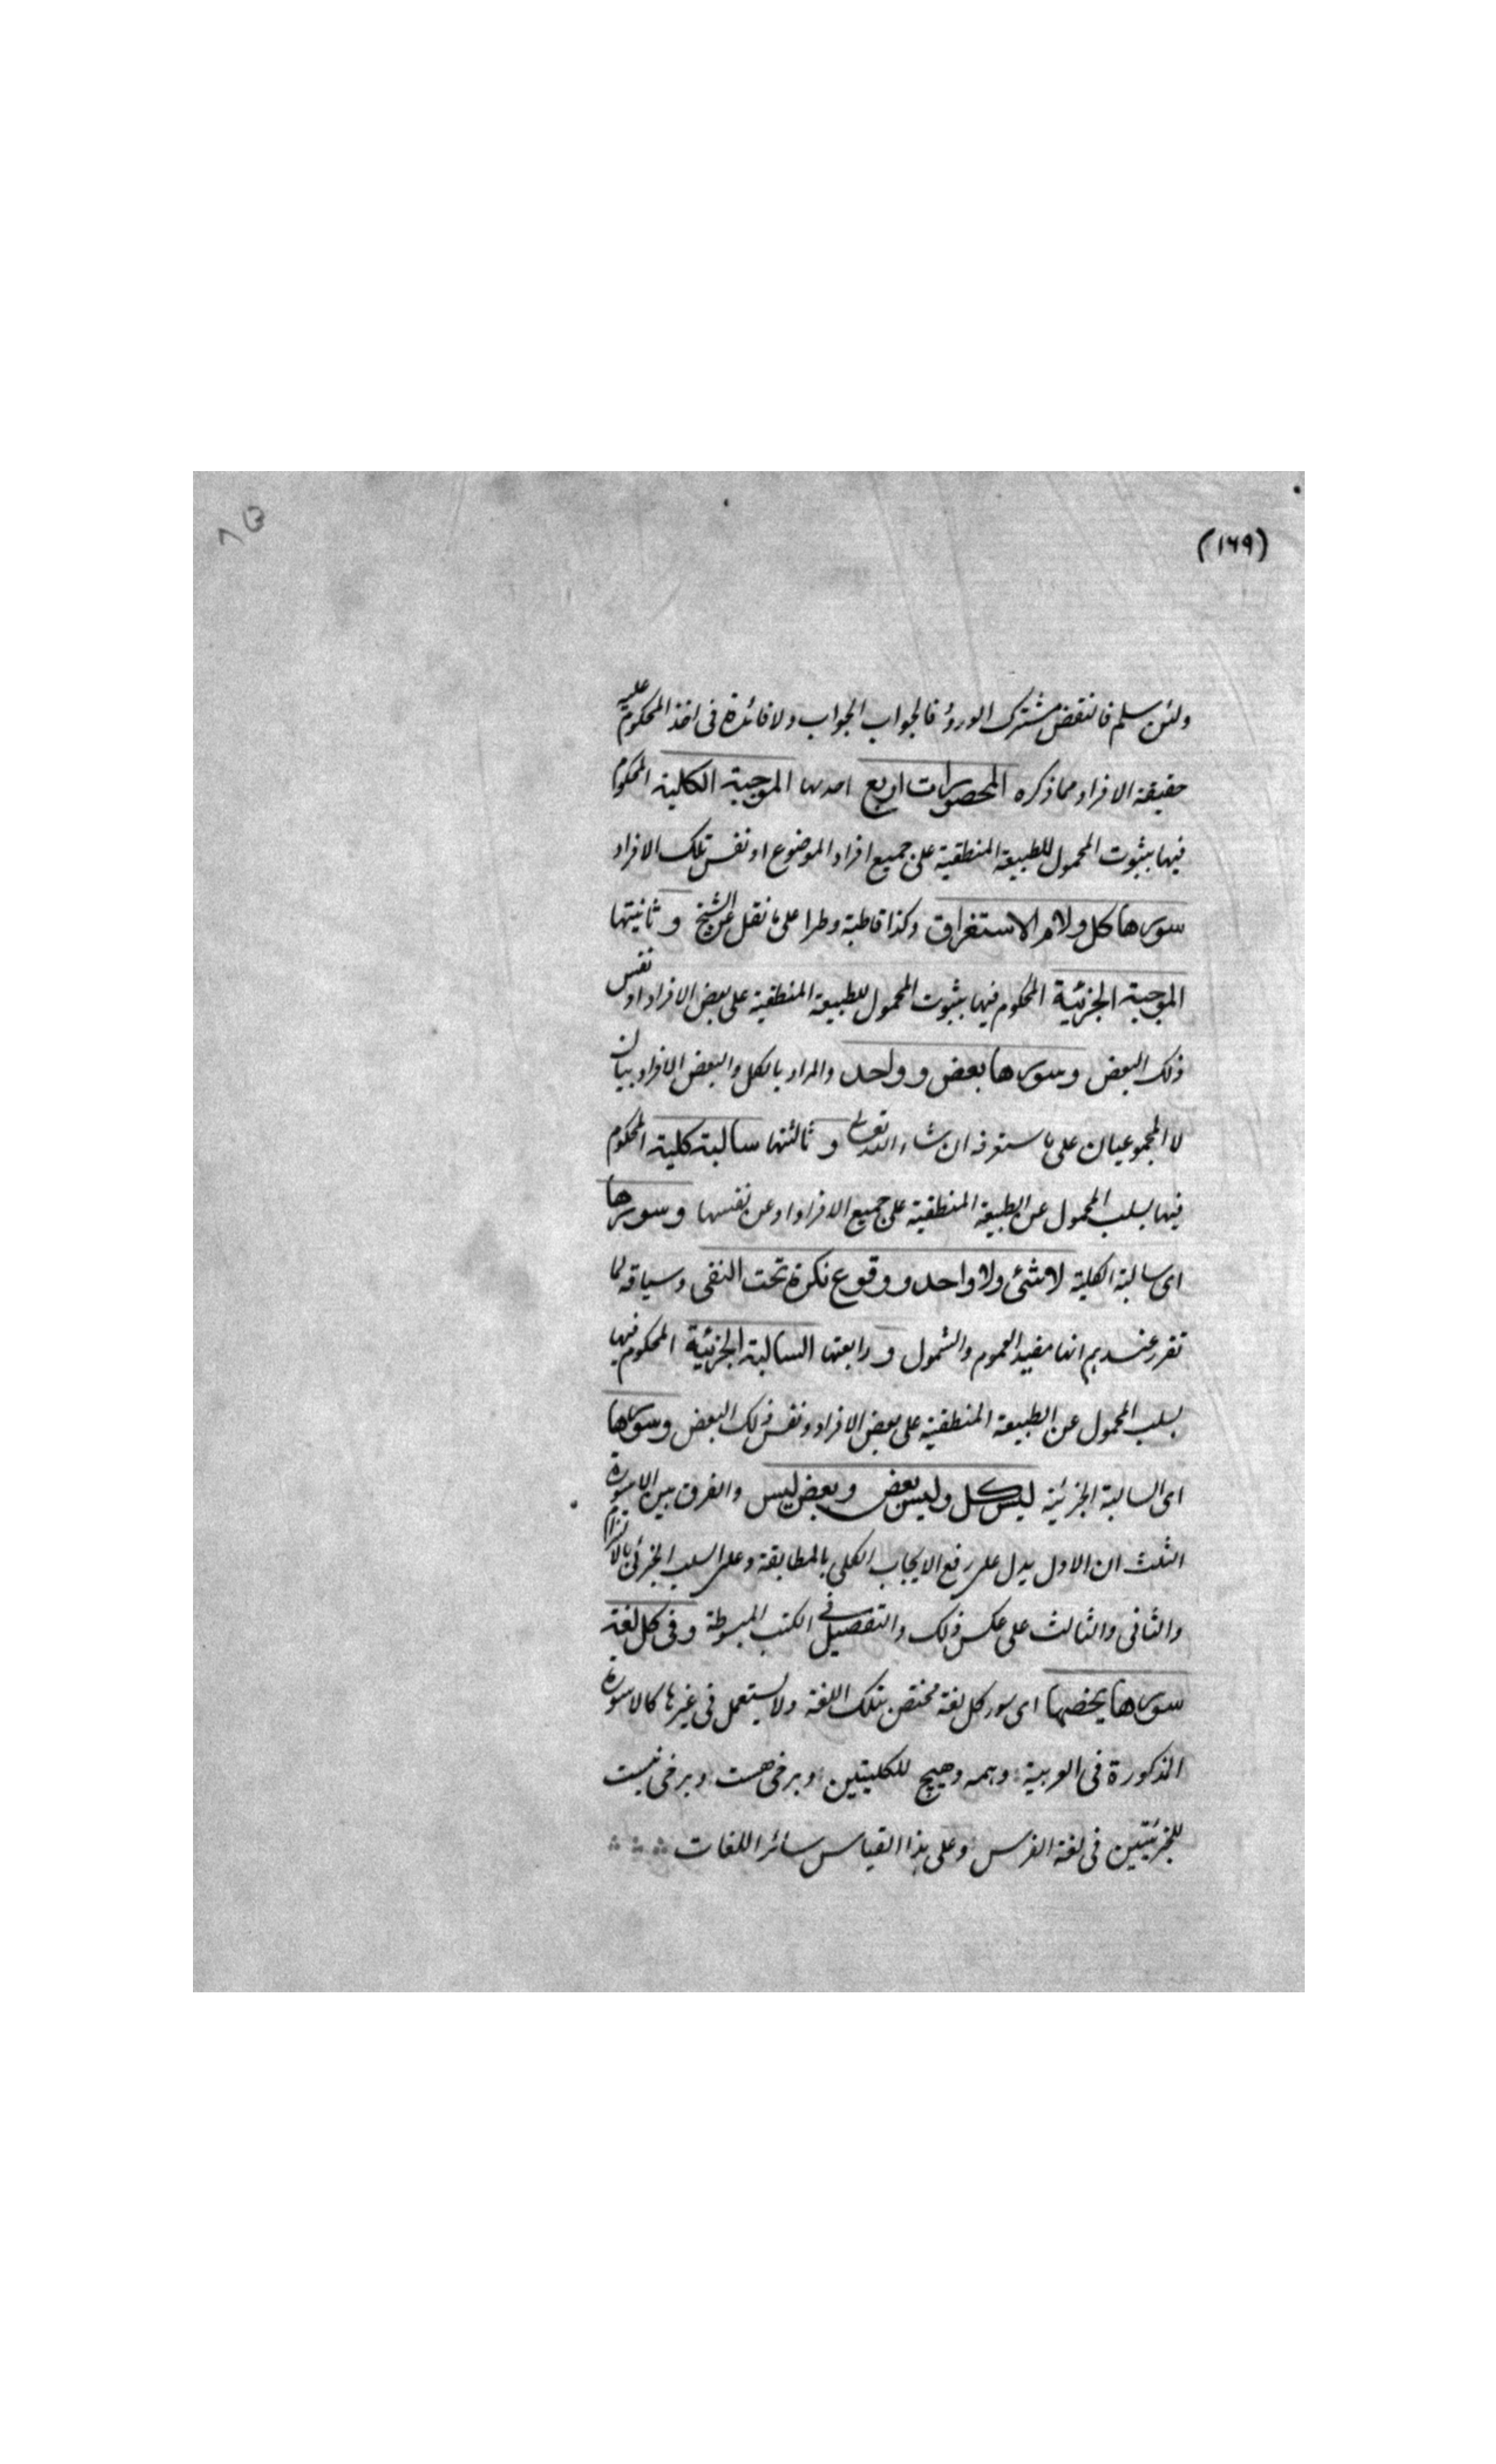 (١٦٩)
ولئن سلم فالنقض مشترك الورود فالجواب الجواب ولا فائدة فى اخذ المحكوم عليه
حقيقة الافراد مما ذكره المحصورات اربع احدها الموجبة الكلية المحكوم
فيها بثبوت المحمول للطبيعة المنطقية على جميع افراد الموضوع او نفس تلك الافراد
سورها كل ولام الاستغراق وكذا قاطبة وطرا على ما نقل عن الشيخ و ثانيتها
الموجبة الجزئية المحكوم فيها بثبوت المحمول للطبيعة المنطقية على بعض الافراد او نفس
ذلك البعض وسورها بعض و واحد والمراد بالكل والبعض الافراديان
لا المجموعيان على ما ستعرفه ان شاء الله تعالى و ثالثتها سالبة كلية المحكوم
فيها بسلب المحمول عن الطبيعة المنطقية على جميع الافراد او عن نفسها وسورها
اى سالبة الكلية لا شئ ولا واحد ووقوع نكرة تحت النفى وسياقه لما
تقرر عندهم انها مفيد العموم والشمول و رابعتها السالبة الجزئية المحكوم فيها
بسلب المحمول عن الطبيعة المنطقية على بعض الافراد ونفس ذلك البعض وسورها
اى السالبة الجزئية ليس كل وليس بعض وبعض ليس والفرق بين الاسورة
الثلث ان الاول يدل على رفع الايجاب الكلى بالمطابقة وعلى السلب الجزئى بالالتزام
والثانى والثالث على عكس ذلك والتفصيل فى الكتب المبسوطة وفى كل لغة
سورها يخصها اى سور كل لغة مختص بتلك اللغة ولا يستعمل فى غيرها كالاسورة
المذكورة فى العربية وهمه وهيچ للكليتين وبرخى هست وبرخى نيست
للجزئيتين فى لغة الفرس وعلى هذا القياس سائر اللغات